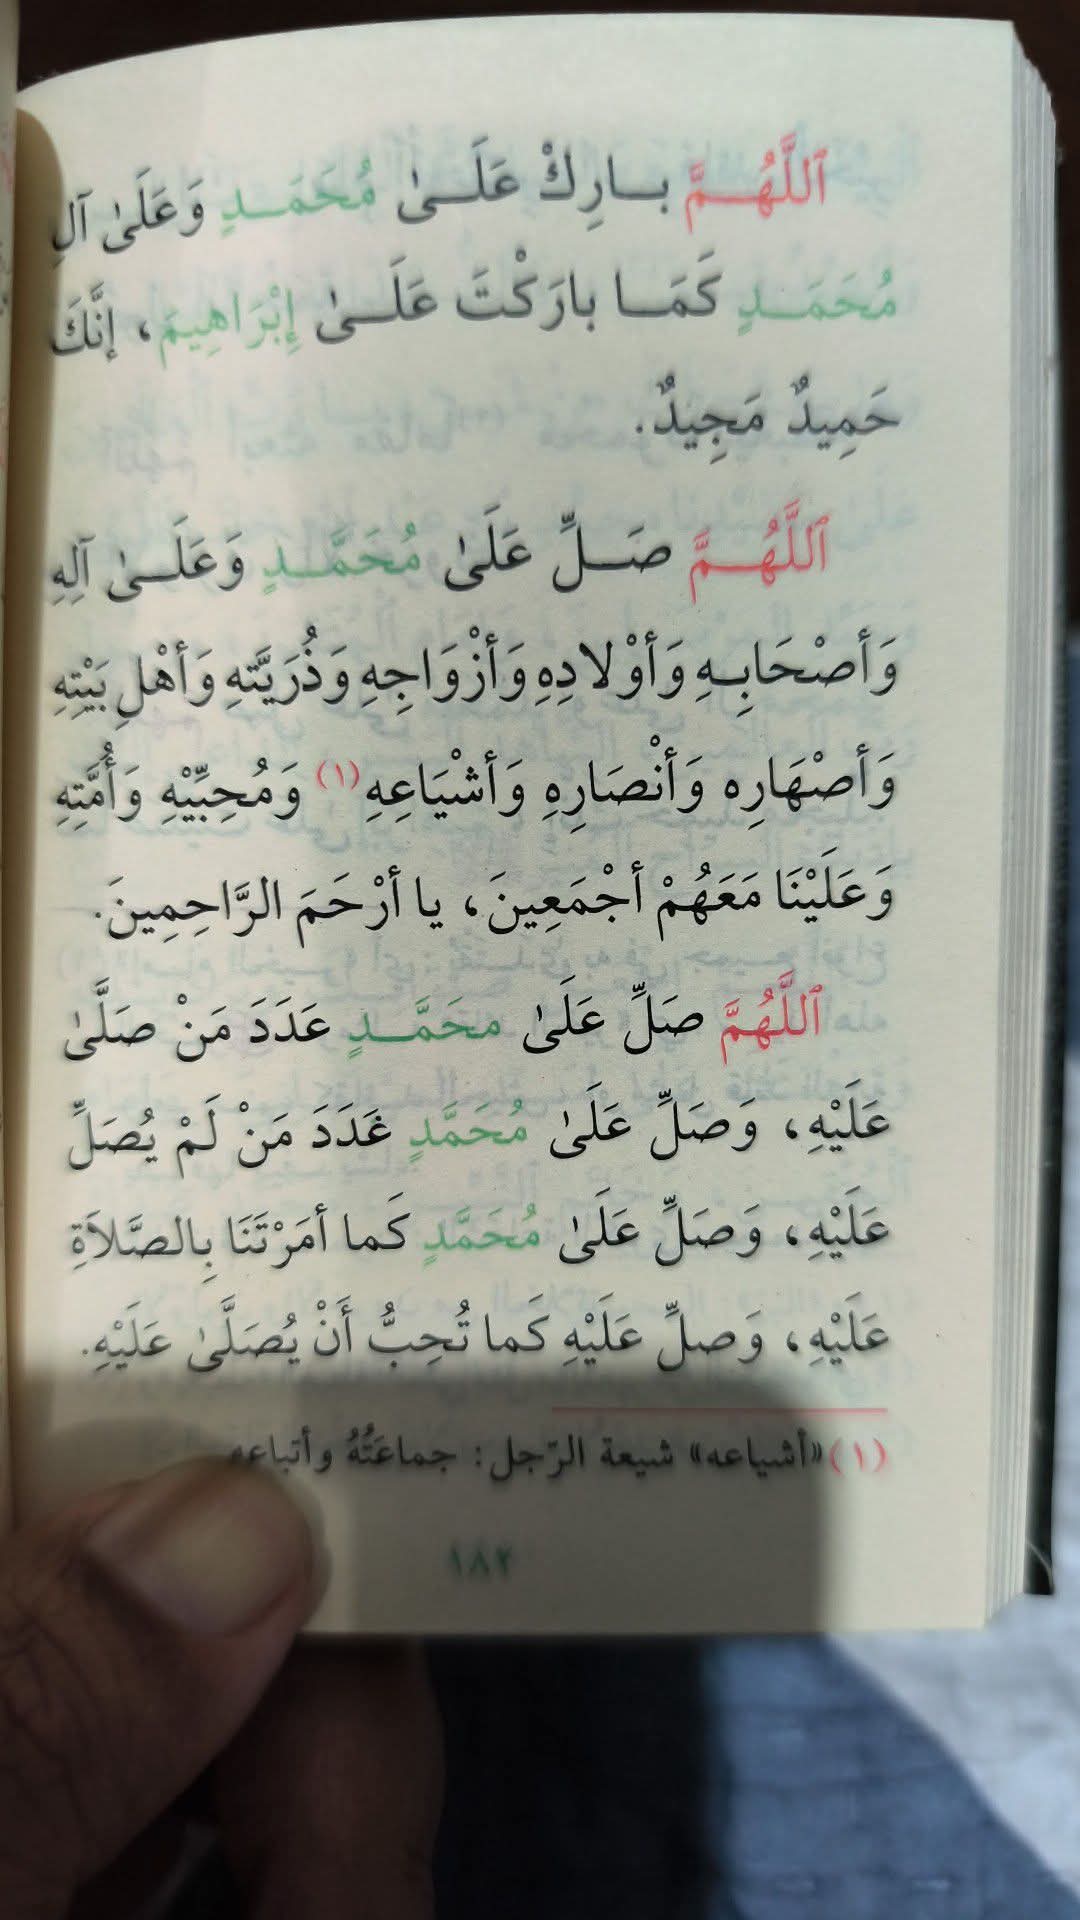 ٱللَّهُمَّ بارِكْ عَلَىٰ مُحَمَدٍ وَعَلَىٰ آلِ
مُحَمَدٍ كَمَا بارَكْتَ عَلَىٰ إِبْرَاهِيمَ، إنَّكَ
حَمِيدٌ مَجِيدٌ.
ٱللَّهُمَّ صَلِّ عَلَىٰ مُحَمَّدٍ وَعَلَىٰ آلِهِ
وَأصْحَابِهِ وَأوْلادِهِ وَأزْوَاجِهِ وَذُرِيَّتِهِ وَأهْلِ بَيْتِهِ
وَأصْهَارِه وَأنْصَارِهِ وَأشْيَاعِهِ(١) وَمُحِبِّيْهِ وَأُمَّتِهِ
وَعَلَيْنَا مَعَهُمْ أجْمَعِينَ، يا أرْحَمَ الرَّاحِمِينَ.
ٱللَّهُمَّ صَلِّ عَلَىٰ محَمَّدٍ عَدَدَ مَنْ صَلَّىٰ
عَلَيْهِ، وَصَلِّ عَلَىٰ مُحَمَّدٍ عَدَدَ مَنْ لَمْ يُصَلِّ
عَلَيْهِ، وَصَلِّ عَلَىٰ مُحَمَّدٍ كَما أمَرْتَنَا بِالصَّلَاةِ
عَلَيْهِ، وَصلِّ عَلَيْهِ كَما تُحِبُّ أَنْ يُصَلَّىٰ عَلَيْهِ.
(١) «أشياعه» شيعة الرّجل: جماعَتُهُ وأتباعه
١٨٢